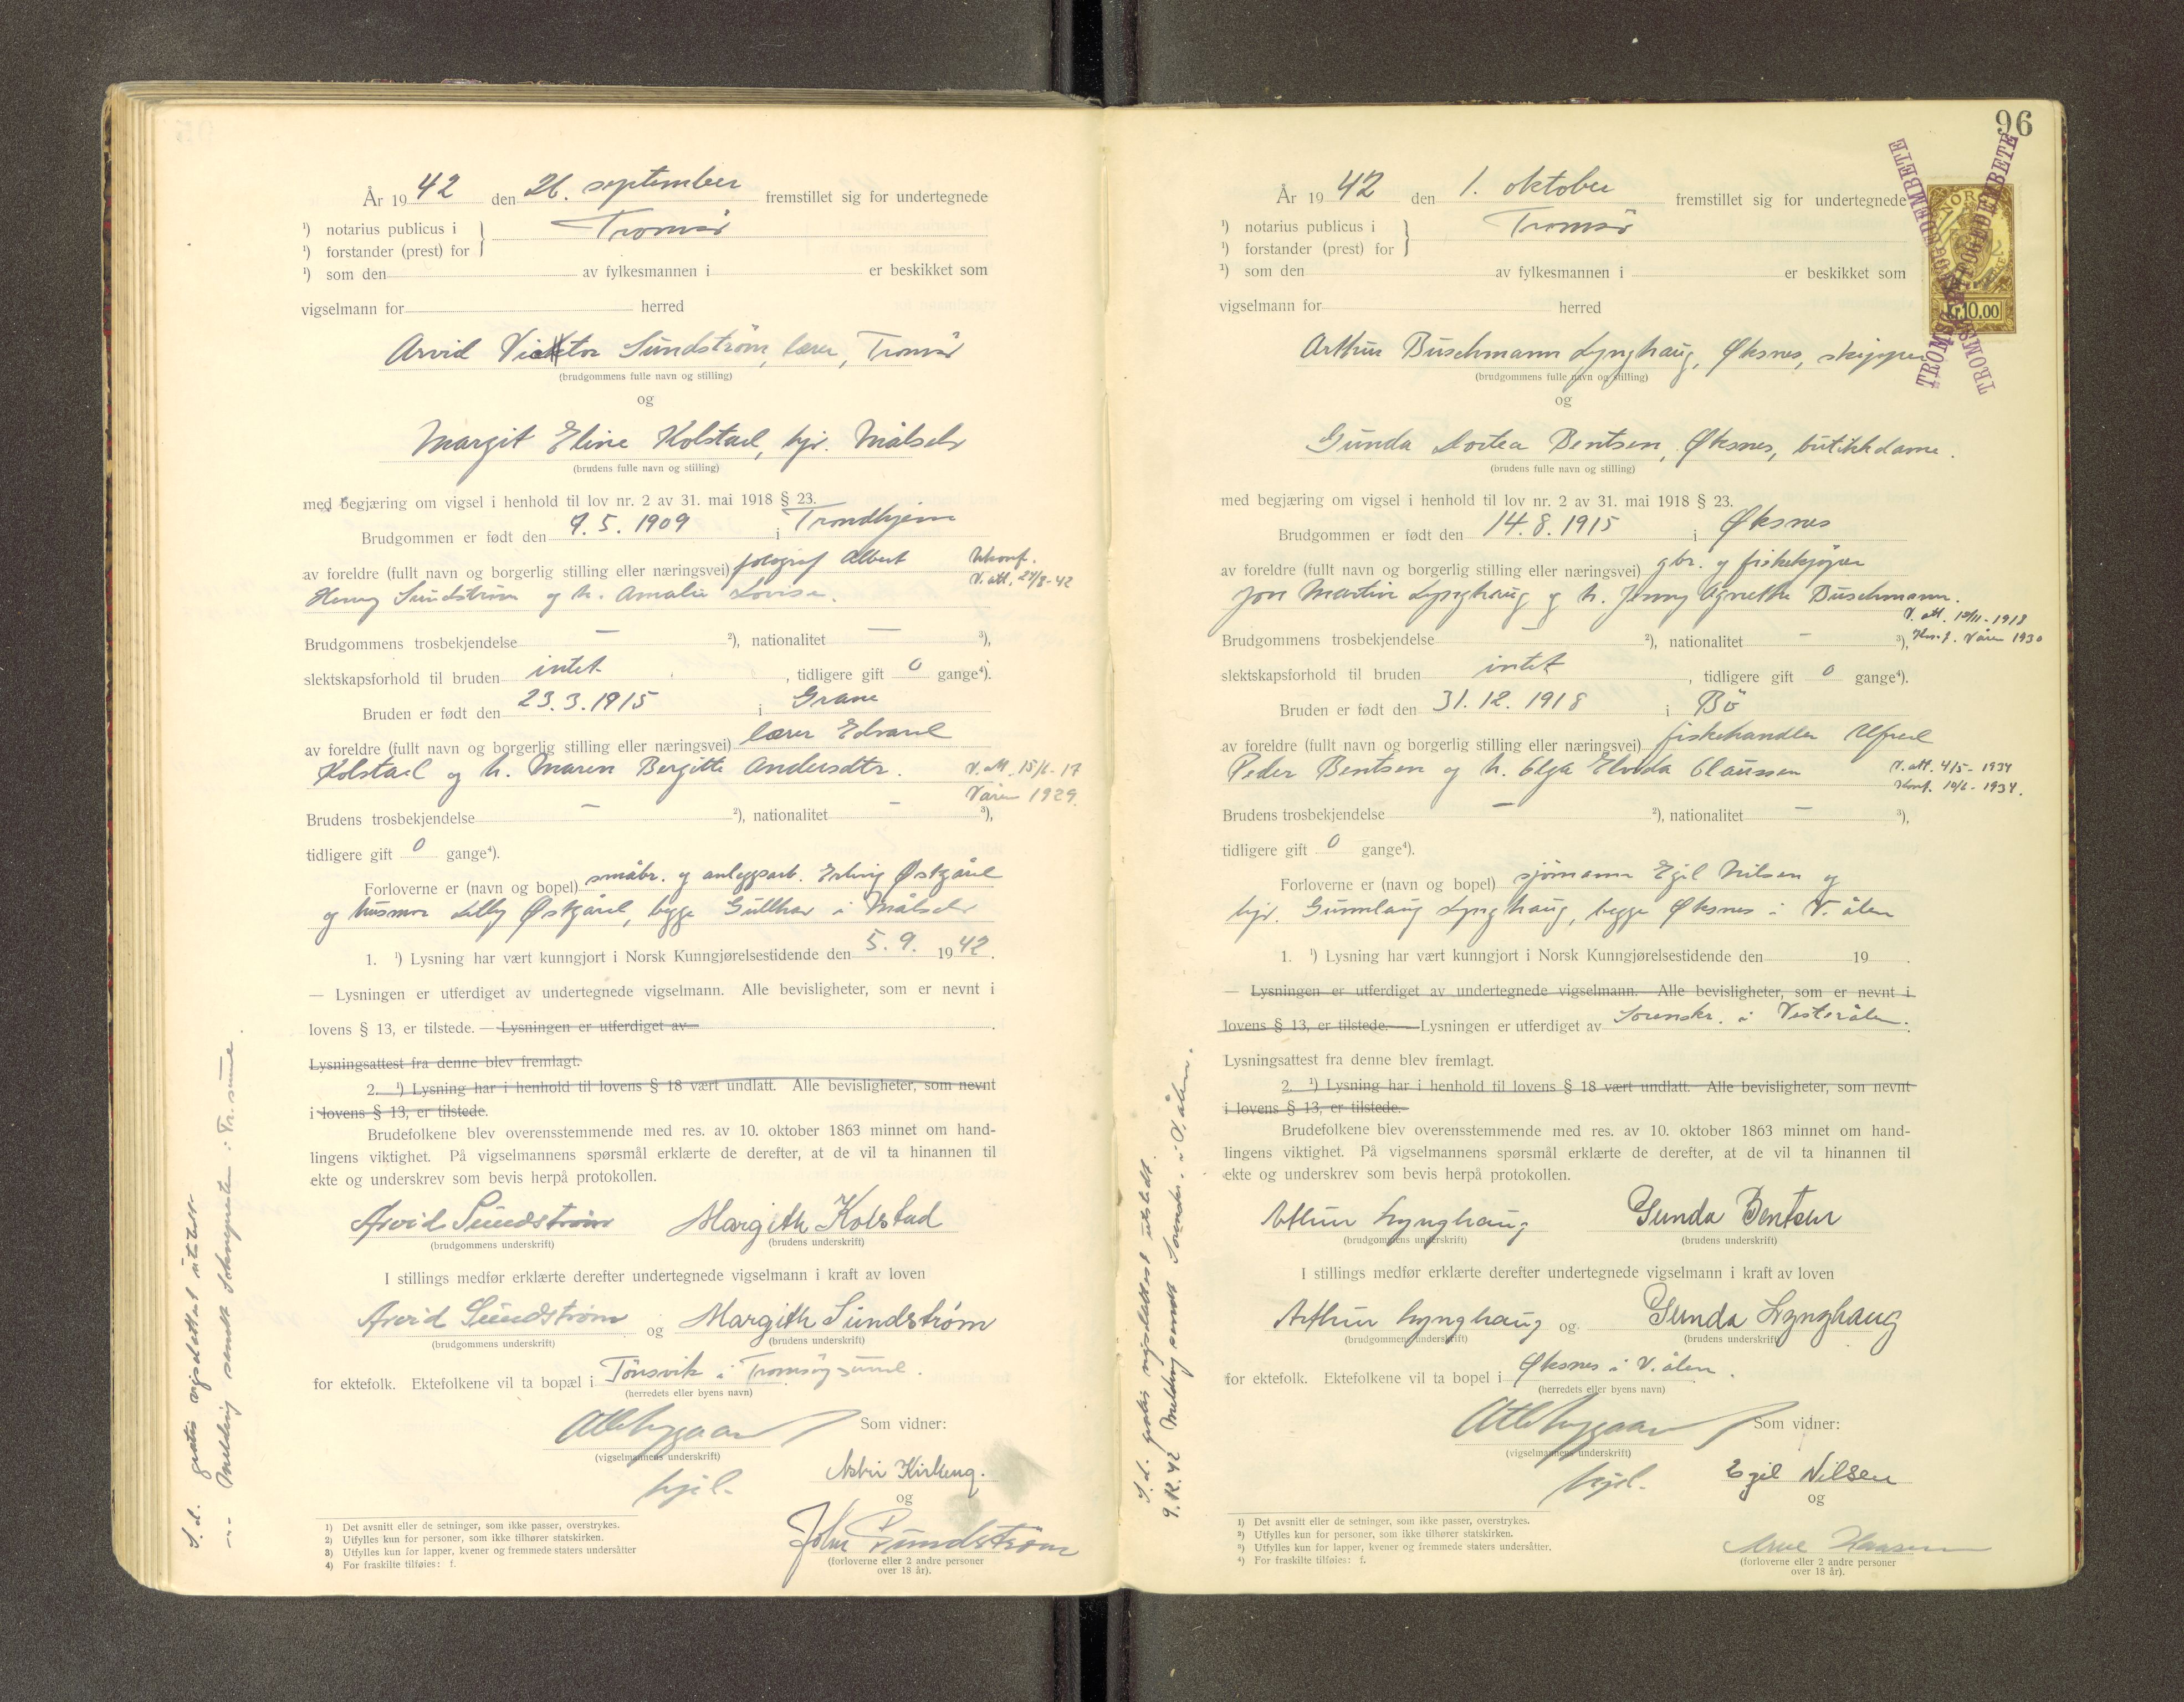 År 1942 den 26. september fremstillet sig for undertegnede
¹) notarius publicus i } Tromsö
¹) forstander (prest) for
¹) som den av fylkesmannen i er beskikket som
vigselmann for herred
Arvid Viktor Sundström, lærer, Tromsö
(brudgommens fulle navn og stilling)
og
Margit Eline Kolstad, hjv. Målselv
(brudens fulle navn og stilling)
med begjæring om vigsel i henhold til lov nr. 2 av 31. mai 1918 § 23.
Brudgommen er født den 9.5.1909 i Trondhjem
av foreldre (fullt navn og borgerlig stilling eller næringsvei) fotograf Albert
Ukonf.
V. att. 27/8-42
Henry Sundström og h. Amalie Lovise.
Brudgommens trosbekjendelse — ²), nationalitet — ³),
slektskapsforhold til bruden intet, tidligere gift 0 gange⁴).
Bruden er født den 23.3.1915 i Grane
av foreldre (fullt navn og borgerlig stilling eller næringsvei) lærer Edvard
Kolstad og h. Maren Bergitte Andersdtr.
V. att. 15/6-17
Våren 1929.
Brudens trosbekjendelse — ²), nationalitet — ³),
tidligere gift 0 gange⁴).
Forloverne er (navn og bopel) småbr. og anleggsarb. Erling Østgård
og husmor Lilly Østgård, begge Gullhav i Målselv
1. ¹) Lysning har vært kunngjort i Norsk Kunngjørelsestidende den 5.9. 1942.
— Lysningen er utferdiget av undertegnede vigselmann. Alle bevisligheter, som er nevnt i
lovens § 13, er tilstede. — Lysningen er utferdiget av
Lysningsattest fra denne blev fremlagt.
2. ¹) Lysning har i henhold til lovens § 18 vært undlatt. Alle bevisligheter, som nevnt
i lovens § 13, er tilstede.
Brudefolkene blev overensstemmende med res. av 10. oktober 1863 minnet om hand-
lingens viktighet. På vigselmannens spørsmål erklærte de derefter, at de vil ta hinannen til
ekte og underskrev som bevis herpå protokollen.
Arvid Sundstrøm Margith Kolstad
(brudgommens underskrift) (brudens underskrift)
I stillings medfør erklærte derefter undertegnede vigselmann i kraft av loven
Arvid Sundstrøm og Margith Sundstrøm
(brudgommens underskrift) (brudens underskrift)
for ektefolk. Ektefolkene vil ta bopæl i Tönsvik i Tromsöysund.
(herredets eller byens navn)
Som vidner:
(vigselmannens underskrift)
Astri Kirkeng.
og
John Sundstrøm
(forloverne eller 2 andre personer
over 18 år).
1) Det avsnitt eller de setninger, som ikke passer, overstrykes.
2) Utfylles kun for personer, som ikke tilhører statskirken.
3) Utfylles kun for lapper, kvener og fremmede staters undersåtter
4) For fraskilte tilføies: f.
S.d. gratis vigselattest utstedt
—"— Melding sendt Soknepresten i Tr.sund.
96
TROMSØ FOGEDEMBETE
TROMSØ FOGEDEMBETE
NORGE
Kr10.00
År 1942 den 1. oktober fremstillet sig for undertegnede
¹) notarius publicus i } Tromsö
¹) forstander (prest) for
¹) som den av fylkesmannen i er beskikket som
vigselmann for herred
Arthur Buschmann Lynghaug, Øksnes, skipper
(brudgommens fulle navn og stilling)
og
Gunda Dortea Bentsen, Øksnes, butikkdame.
(brudens fulle navn og stilling)
med begjæring om vigsel i henhold til lov nr. 2 av 31. mai 1918 § 23.
Brudgommen er født den 14.8.1915 i Øksnes
av foreldre (fullt navn og borgerlig stilling eller næringsvei) gbr. og fiskekjøper
Jon Martin Lynghaug og h. Jenny Agnethe Buschmann.
V. att. 18/11-1918
Konf. Våren 1930
Brudgommens trosbekjendelse — ²), nationalitet — ³),
slektskapsforhold til bruden intet, tidligere gift 0 gange⁴).
Bruden er født den 31.12.1918 i Bö
av foreldre (fullt navn og borgerlig stilling eller næringsvei) fiskehandler Alfred
Peder Bentsen og h. Olga Elvida Claussen
V. att. 4/5-1934
Konf. 10/6-1934.
Brudens trosbekjendelse — ²), nationalitet — ³),
tidligere gift 0 gange⁴).
Forloverne er (navn og bopel) sjømann Egil Nilsen og
hjv. Gunnlaug Lynghaug, begge Øksnes i V. ålen
1. ¹) Lysning har vært kunngjort i Norsk Kunngjørelsestidende den 19 .
— Lysningen er utferdiget av undertegnede vigselmann. Alle bevisligheter, som er nevnt i
lovens § 13, er tilstede. — Lysningen er utferdiget av Sorenskr. i Vesterålen.
Lysningsattest fra denne blev fremlagt.
2. ¹) Lysning har i henhold til lovens § 18 vært undlatt. Alle bevisligheter, som nevnt
i lovens § 13, er tilstede.
Brudefolkene blev overensstemmende med res. av 10. oktober 1863 minnet om hand-
lingens viktighet. På vigselmannens spørsmål erklærte de derefter, at de vil ta hinannen til
ekte og underskrev som bevis herpå protokollen.
Arthur Lynghaug Gunda Bentsen
(brudgommens underskrift) (brudens underskrift)
I stillings medfør erklærte derefter undertegnede vigselmann i kraft av loven
Arthur Lynghaug og Gunda Lynghaug
(brudgommens underskrift) (brudens underskrift)
for ektefolk. Ektefolkene vil ta bopel i Øksnes i V. ålen.
(herredets eller byens navn)
Som vidner:
(vigselmannens underskrift)
Egil Nilsen
og
Arne Hansen
(forloverne eller 2 andre personer
over 18 år).
1) Det avsnitt eller de setninger, som ikke passer, overstrykes.
2) Utfylles kun for personer, som ikke tilhører statskirken.
3) Utfylles kun for lapper, kvener og fremmede staters undersåtter.
4) For fraskilte tilføies: f.
S.d. gratis vigselattest utstedt.
9.12.42 Melding sendt Sorenskr. i V.ålen.